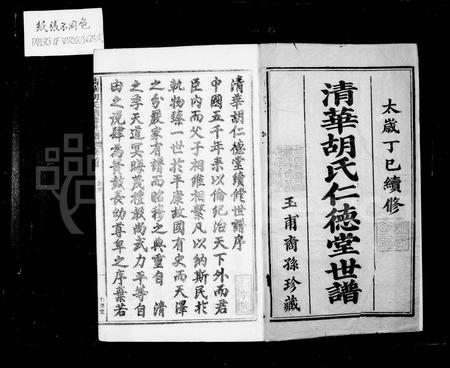 紙張不同色
PAPERS OF VARIOUS COLO
太歲丁巳續修
清華胡氏仁德堂世譜
玉甫裔孫珍藏
清華胡仁德堂續修世譜序
中國五千年來以倫紀治天下外而君
臣内而父子相維相繫凡以納斯民於
軌物臻一世於平康故國有史而天澤
之分嚴家有譜而昭穆之典重自清
之季天道冥晦蔑禮教尚武力平等自
由之說肆為簧鼓長幼尊卑之序棄若
仁德堂